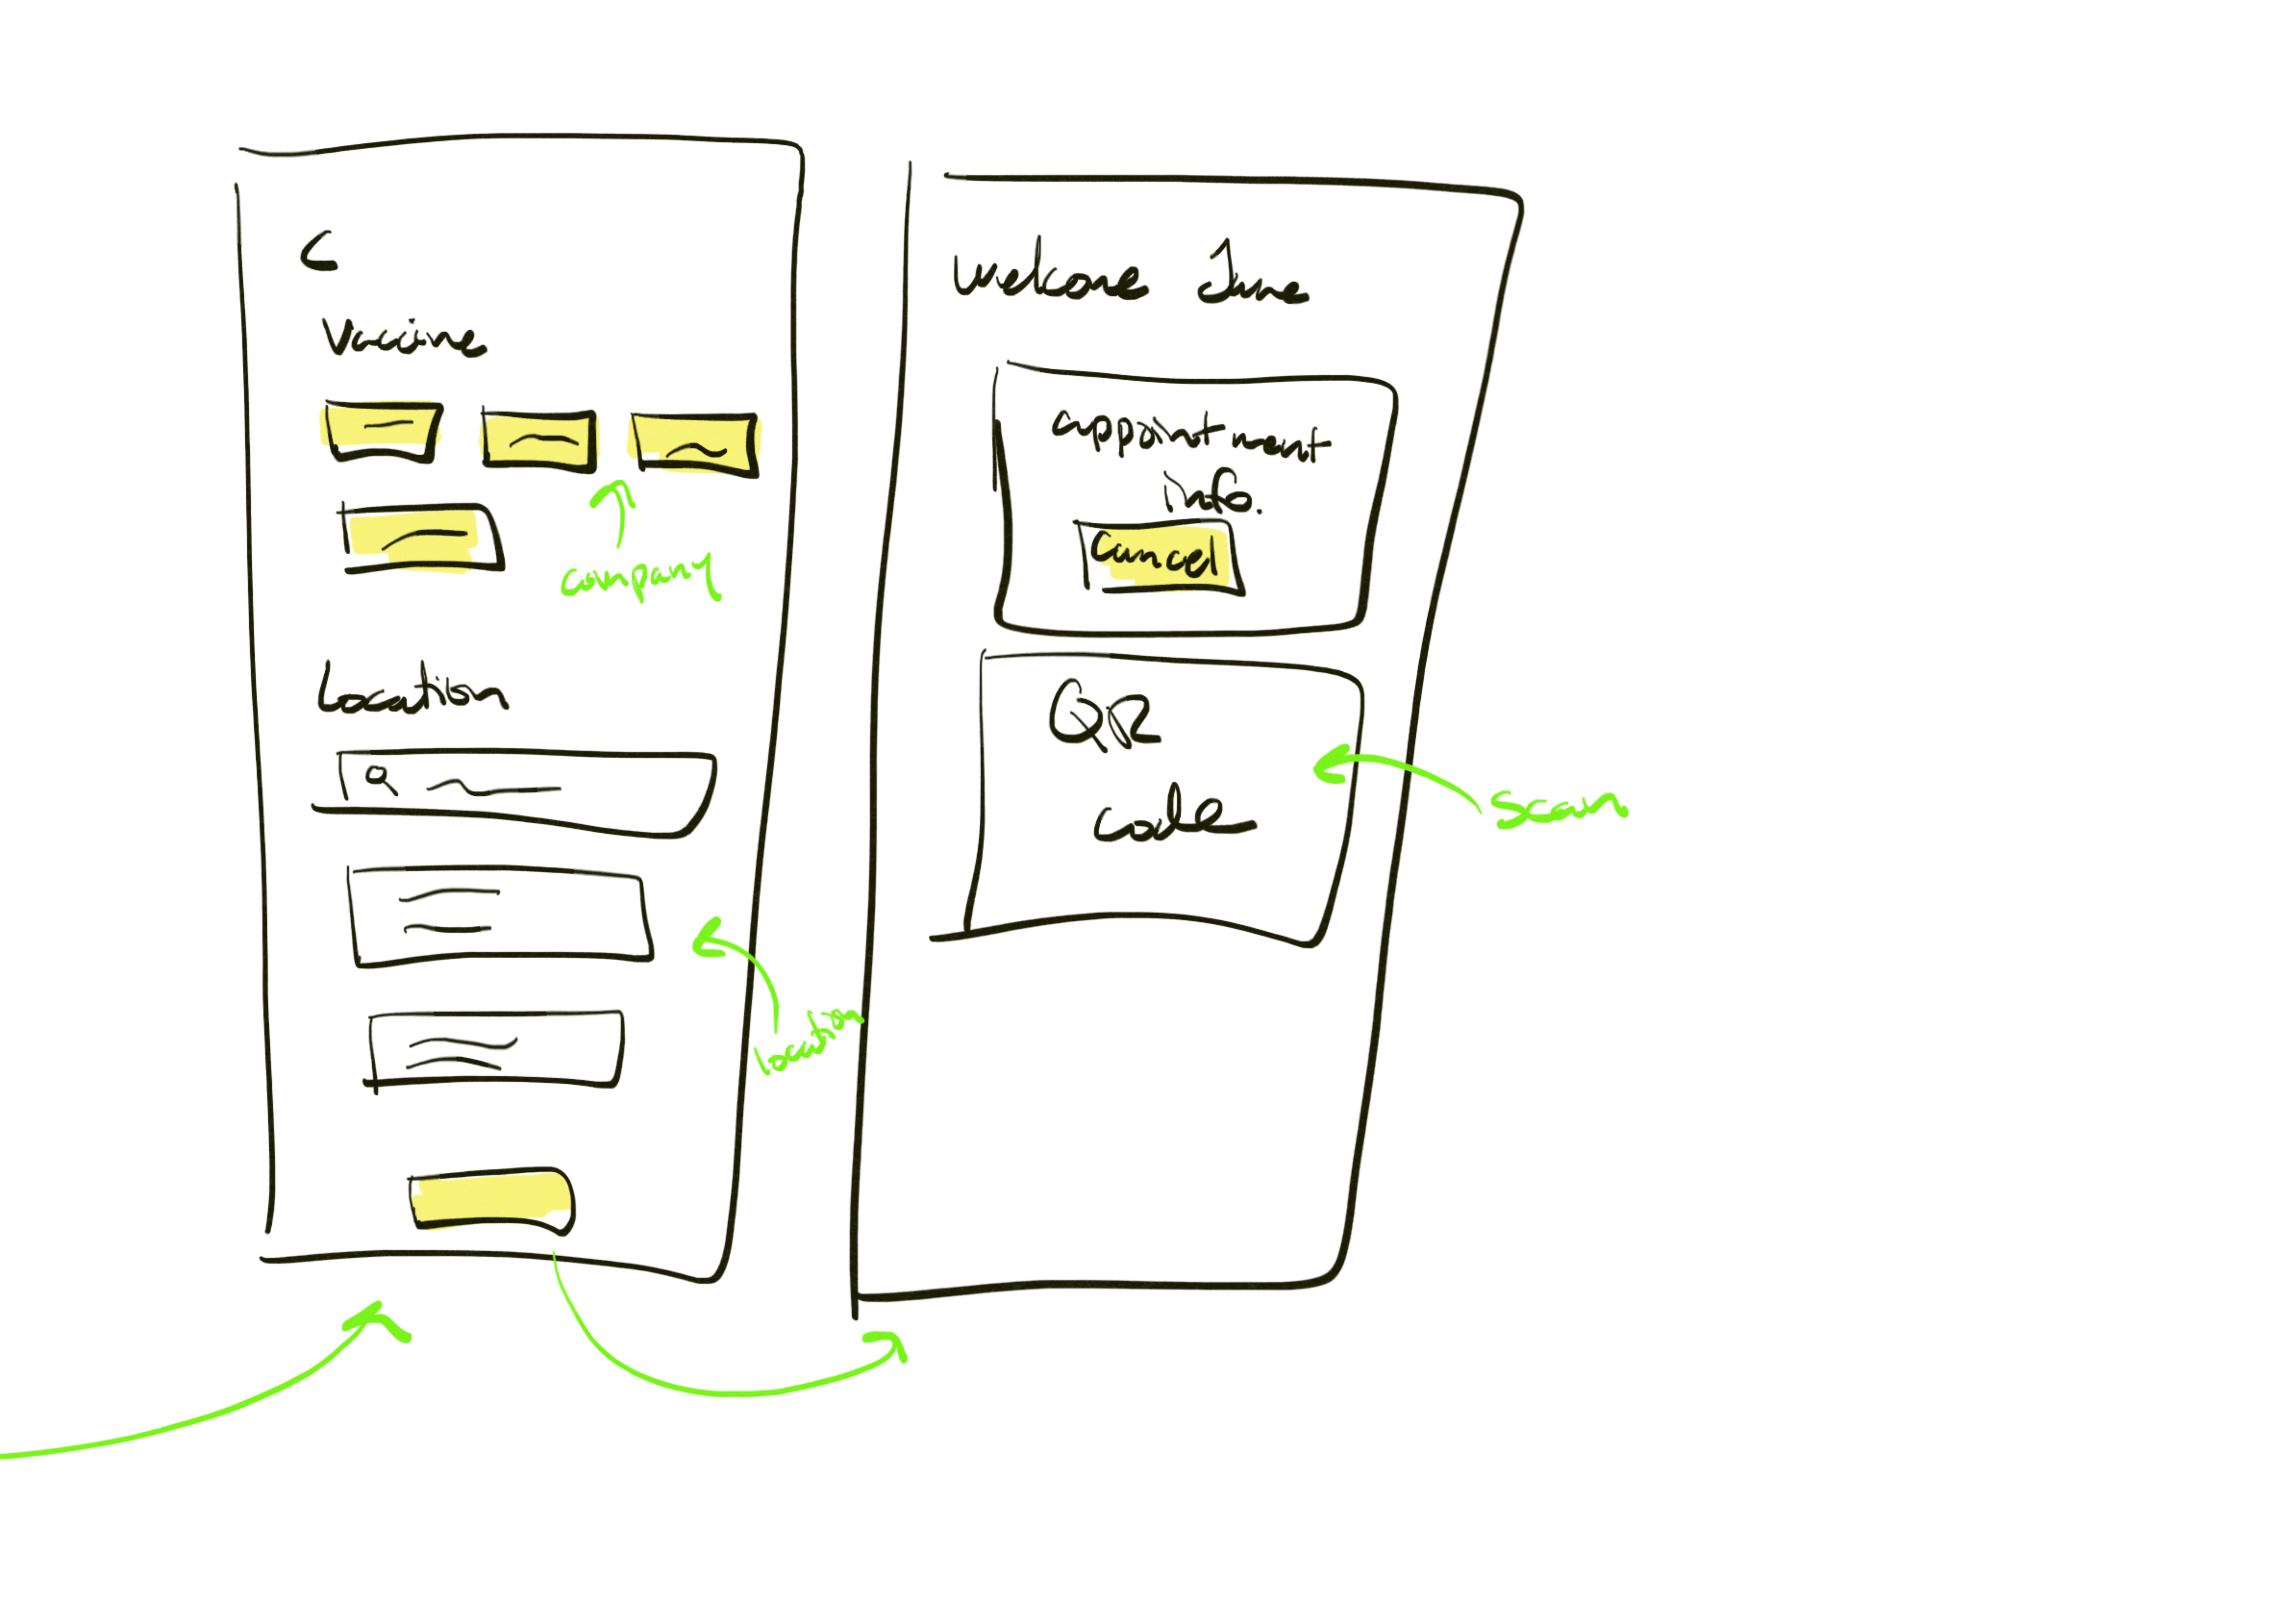 Vaccine
company
Location
location
Welcome June
appointment
info.
Cancel
QR
code
Scan